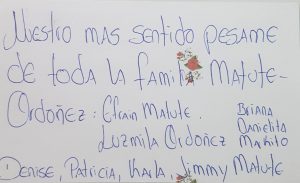 Nuestro mas sentido pesame
de toda la familia Matute-
Ordoñez: Efrain Matute.
Luzmila Ordoñez
Briana
Danielita
Mathito
Denise, Patricia, Karla, Jimmy Matute